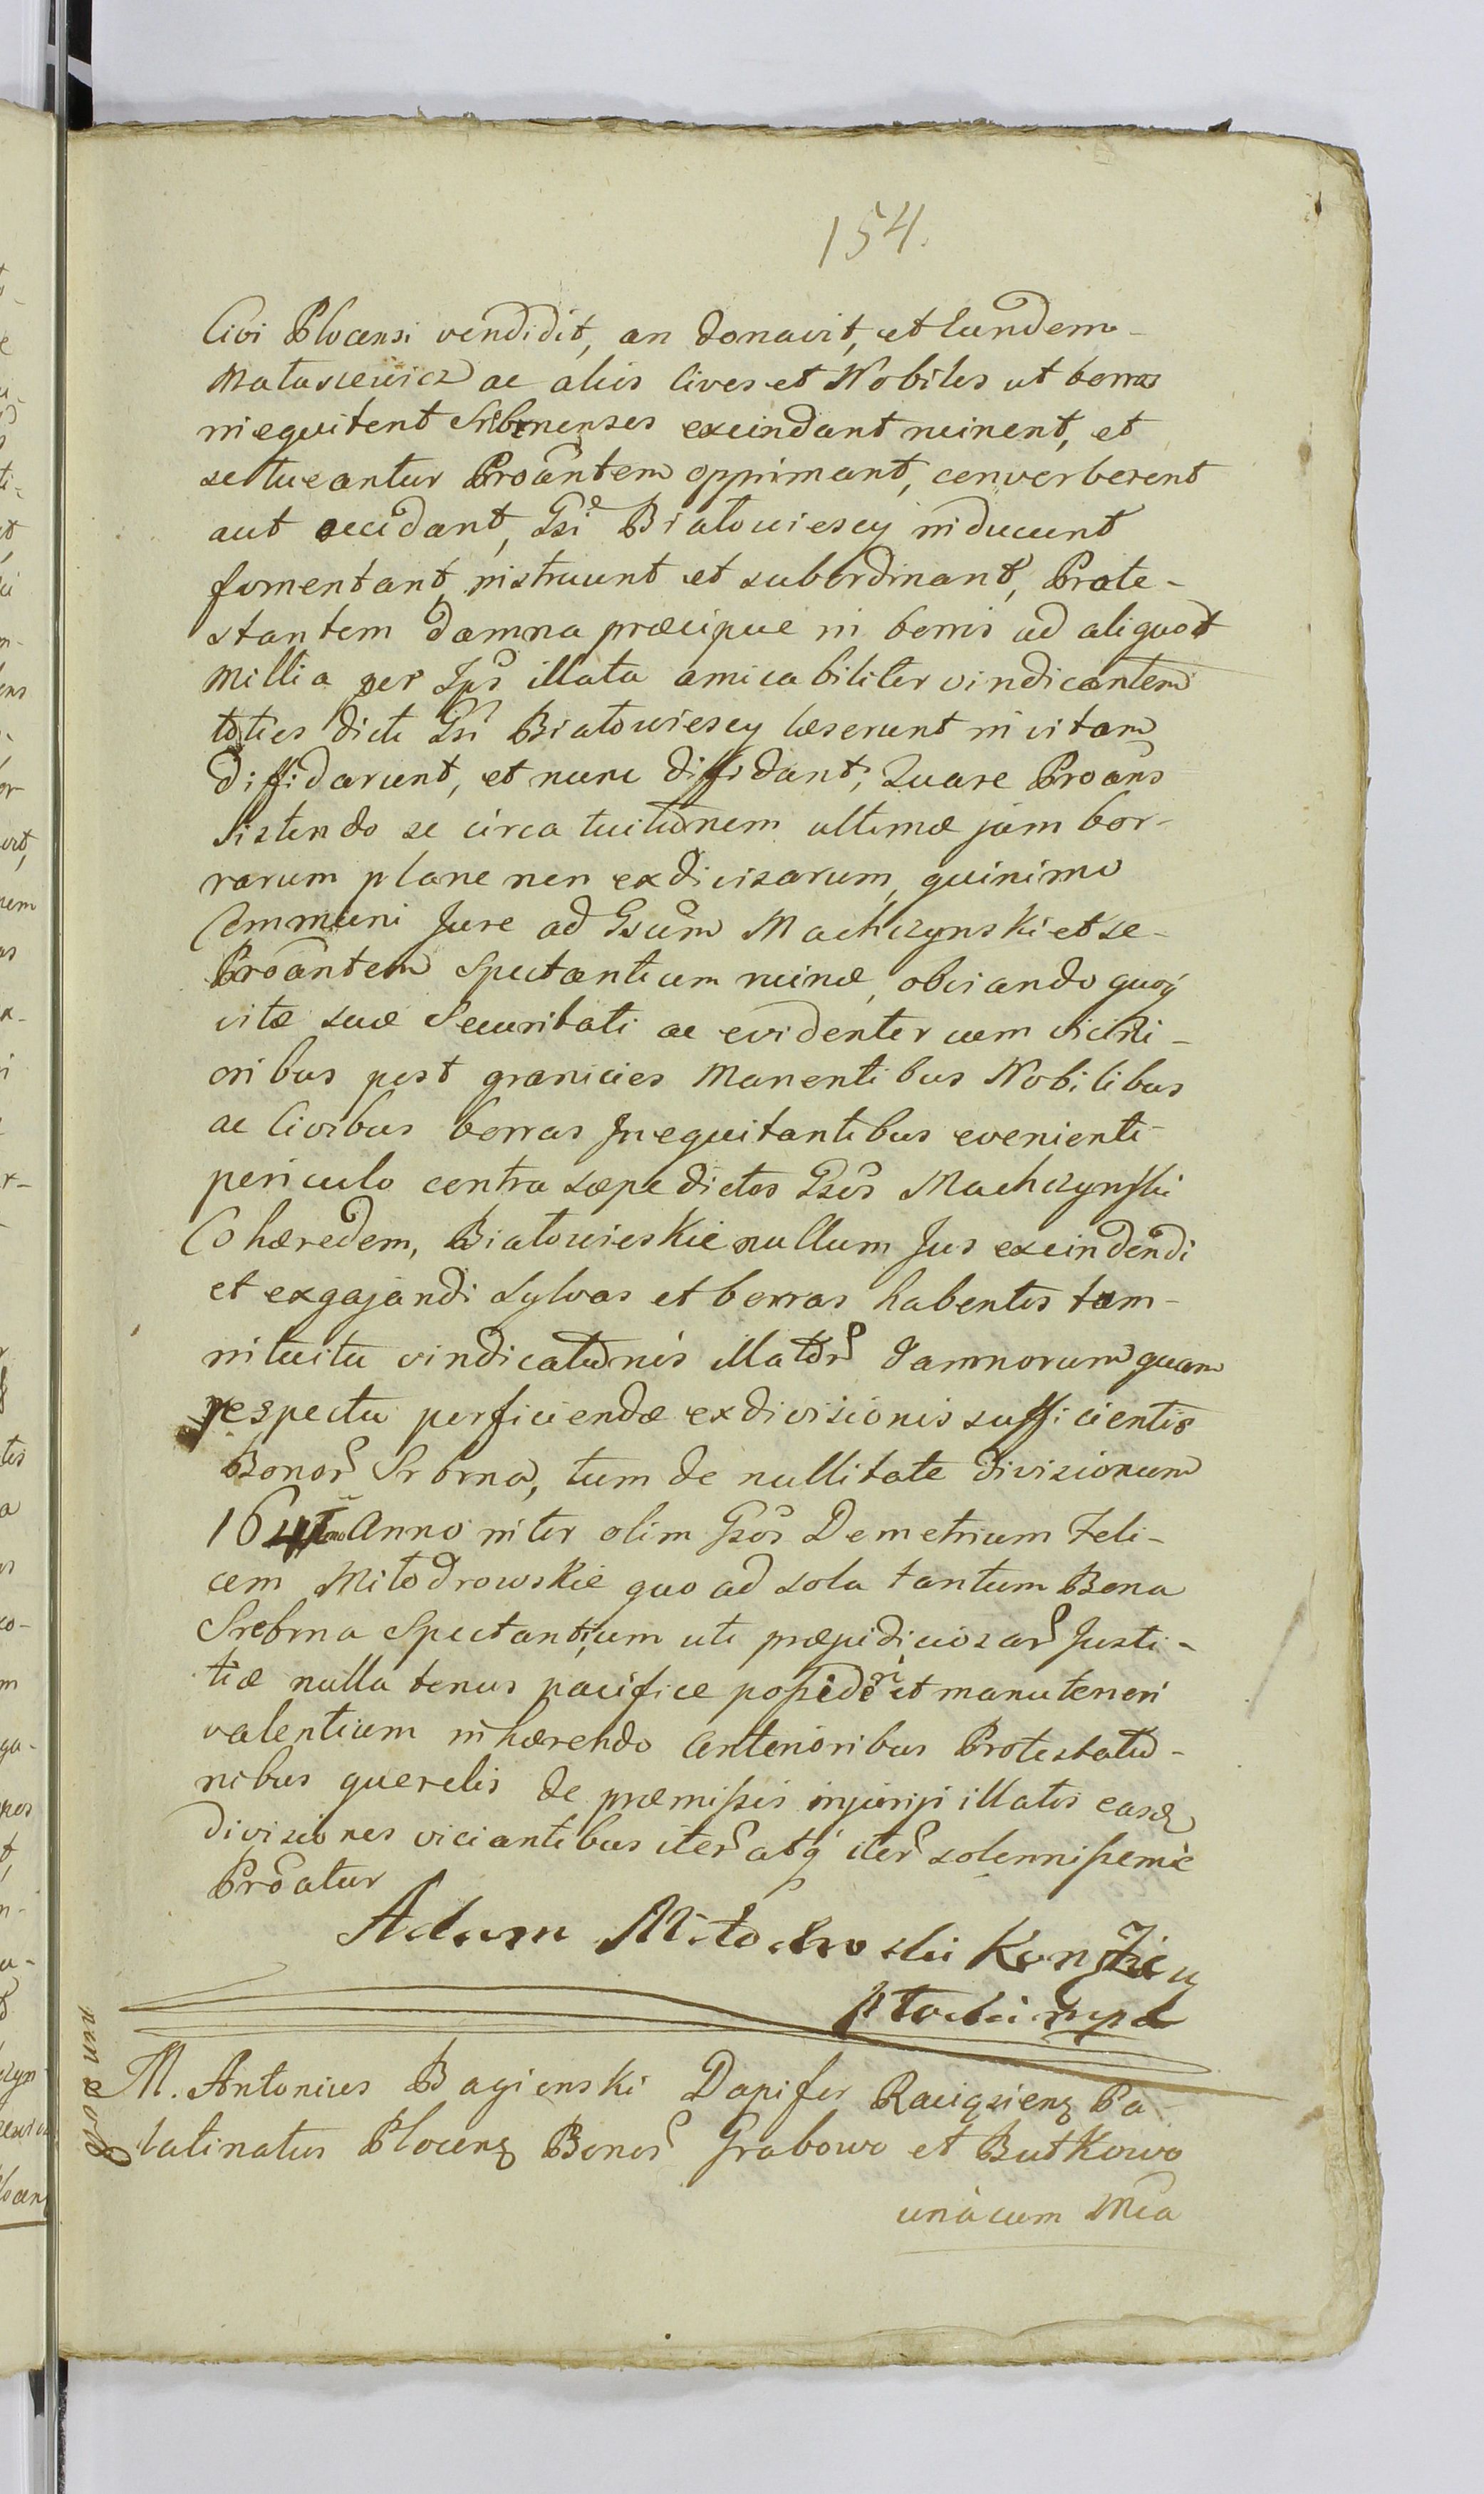 154.
Civi Plocensi vendidit, an donavit, et Eundem
Matusiewicz ac alios Cives et Nobiles ut borras
inequitent Srebrnenses exscindant ruinent, et
se tueantur Proântem opprimant, converberent
aut occidant, Gsi Białowiescy inducunt
fomentant, instruunt et subordinant, Prote-
stantem damna præcipue in borris ad aliquot
Millia per Ipôs illata amicabiliter vindicantem
toties dicti Gsi Białowiescy læserunt in vitam
diffidarunt, et nunc diffidant; Quare Proâns
Sistendo se circa tuitionem ultimæ jam bor-
rarum plane non exdivisarum, quinimo
Communi Jure ad Gsum Machczynski et se
Proântem Spectantium ruinæ, obviando quoq́
vitæ suæ Securitati ac evidenter cum vicini-
oribus post granicies Manentibus Nobilibus
ac Civibus borras Inequitantibus evenienti
periculo contra sæpe dictos Gsos Machczynski
Cohæredem, Białowieskie nullum Jus exscindendi
et exgajandi Sylvas et borras habentes tam
intuitu vindicationis illator̃ damnorum quam
respectu perficiendæ exdivisionis sufficientis
Bonor̃ Srebrna, tum de nullitate divisionum
Anno inter olim Gsos Demetrium Feli-
cem Miłodrowskie quo ad sola tantum Bona
Srebrna Spectantium uti præjudiciosar̃ Justi-
tiæ nulla tenus pacifice possideri et manuteneri
valentium inhærendo anterioribus Protestatio-
nibus querelis de præmissis injuriis illatis easq
divisiones viciantibus iter̃ atq́ iter̃ solennissime
Proâtur
Adam Miłodrowski
M. Antonius Bagienski Dapifer Raciązień Pa-
latinatus Plocenſ Bonor̃ Grabowo et Butkowo
unàcum Mcâ